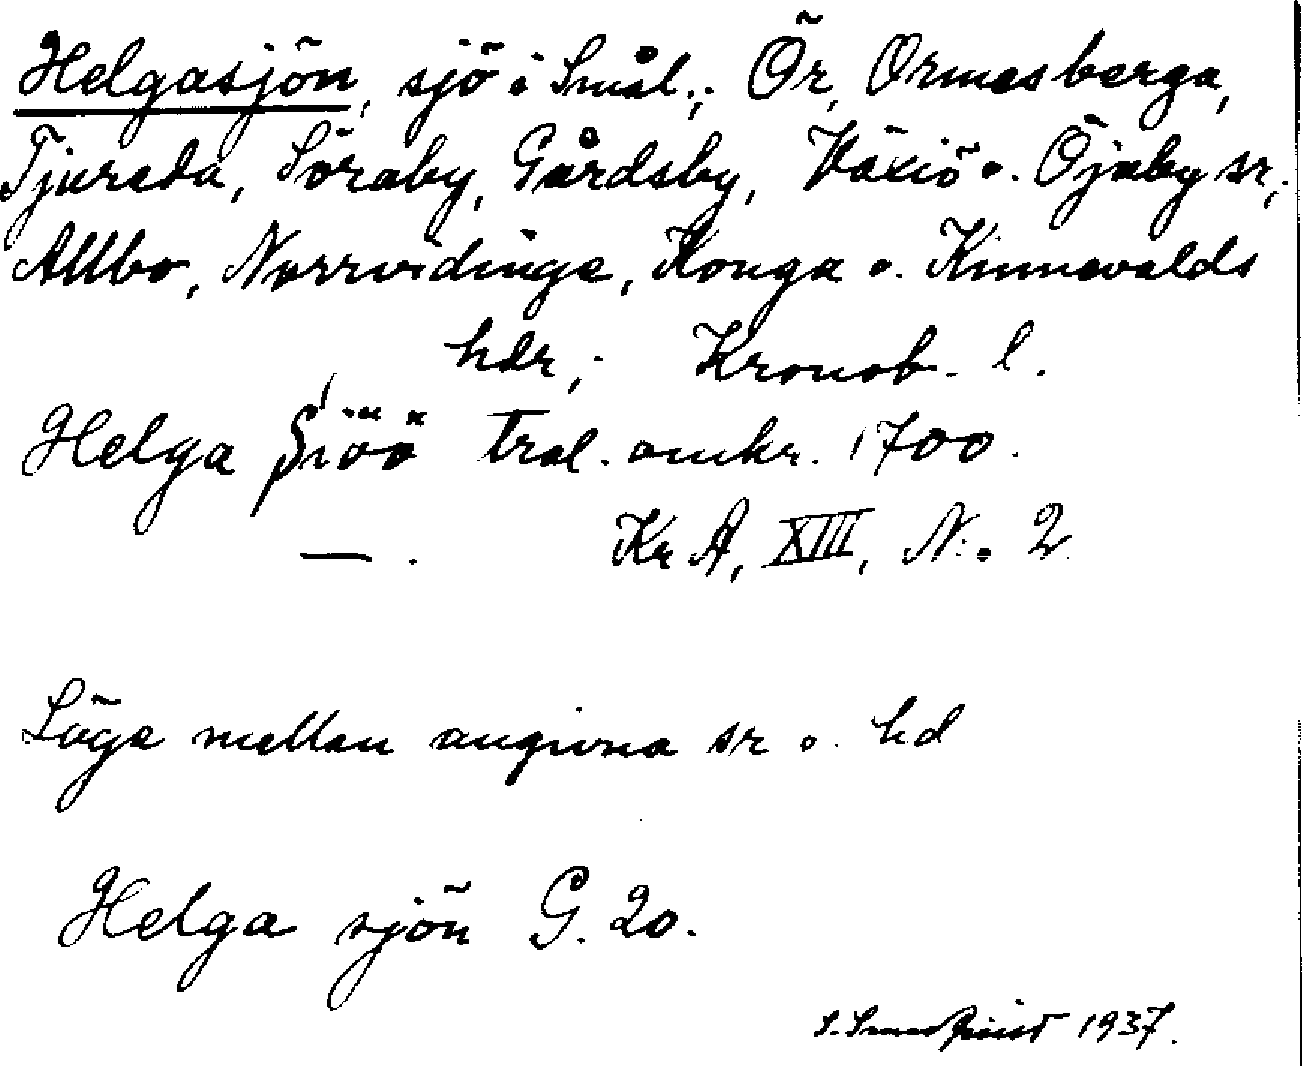 Helgasjön, sjö i Smål.; Ör, Ormesberga,
Tjureda, Söraby, Gårdsby, Växiö o. Öjaby sr,
Allbo, Norrvidinge, Konga o. Kinnevalds
hdr; Kronob. l.
Helga Siöö Tral. omkr. 1700.
— . Kr A, XIII, N:o 2
Läge mellan angivna sr o. hd
Helga sjön G. 20.
1937.